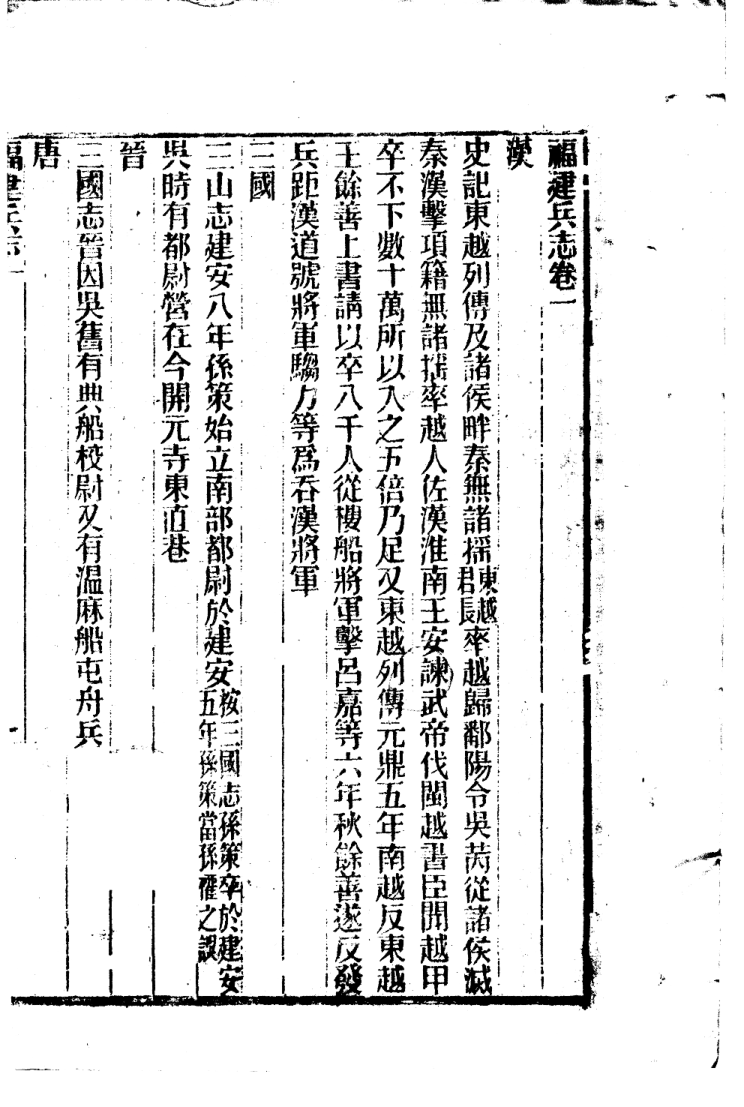 福建兵志卷一
漢
史記東越列傳及諸侯畔秦無諸搖東越君長率越歸鄱陽令吳芮從諸侯滅
秦漢擊項籍無諸搖率越人佐漢淮南王安諫武帝伐閩越書臣聞越甲
卒不下數十萬所以入之五倍乃足又東越列傳元鼎五年南越反東越
王餘善上書請以卒八千人從樓船將軍擊呂嘉等六年秋餘善遂反發
兵距漢道號將軍騶力等爲吞漢將軍
三國
三山志建安八年孫策始立南部都尉於建安按三國志孫策卒於建安五年孫策當孫權之誤
吳時有都尉營在今開元寺東直巷
晉
三國志晉因吳舊有典船校尉又有溫麻船屯舟兵
唐
福建兵志一